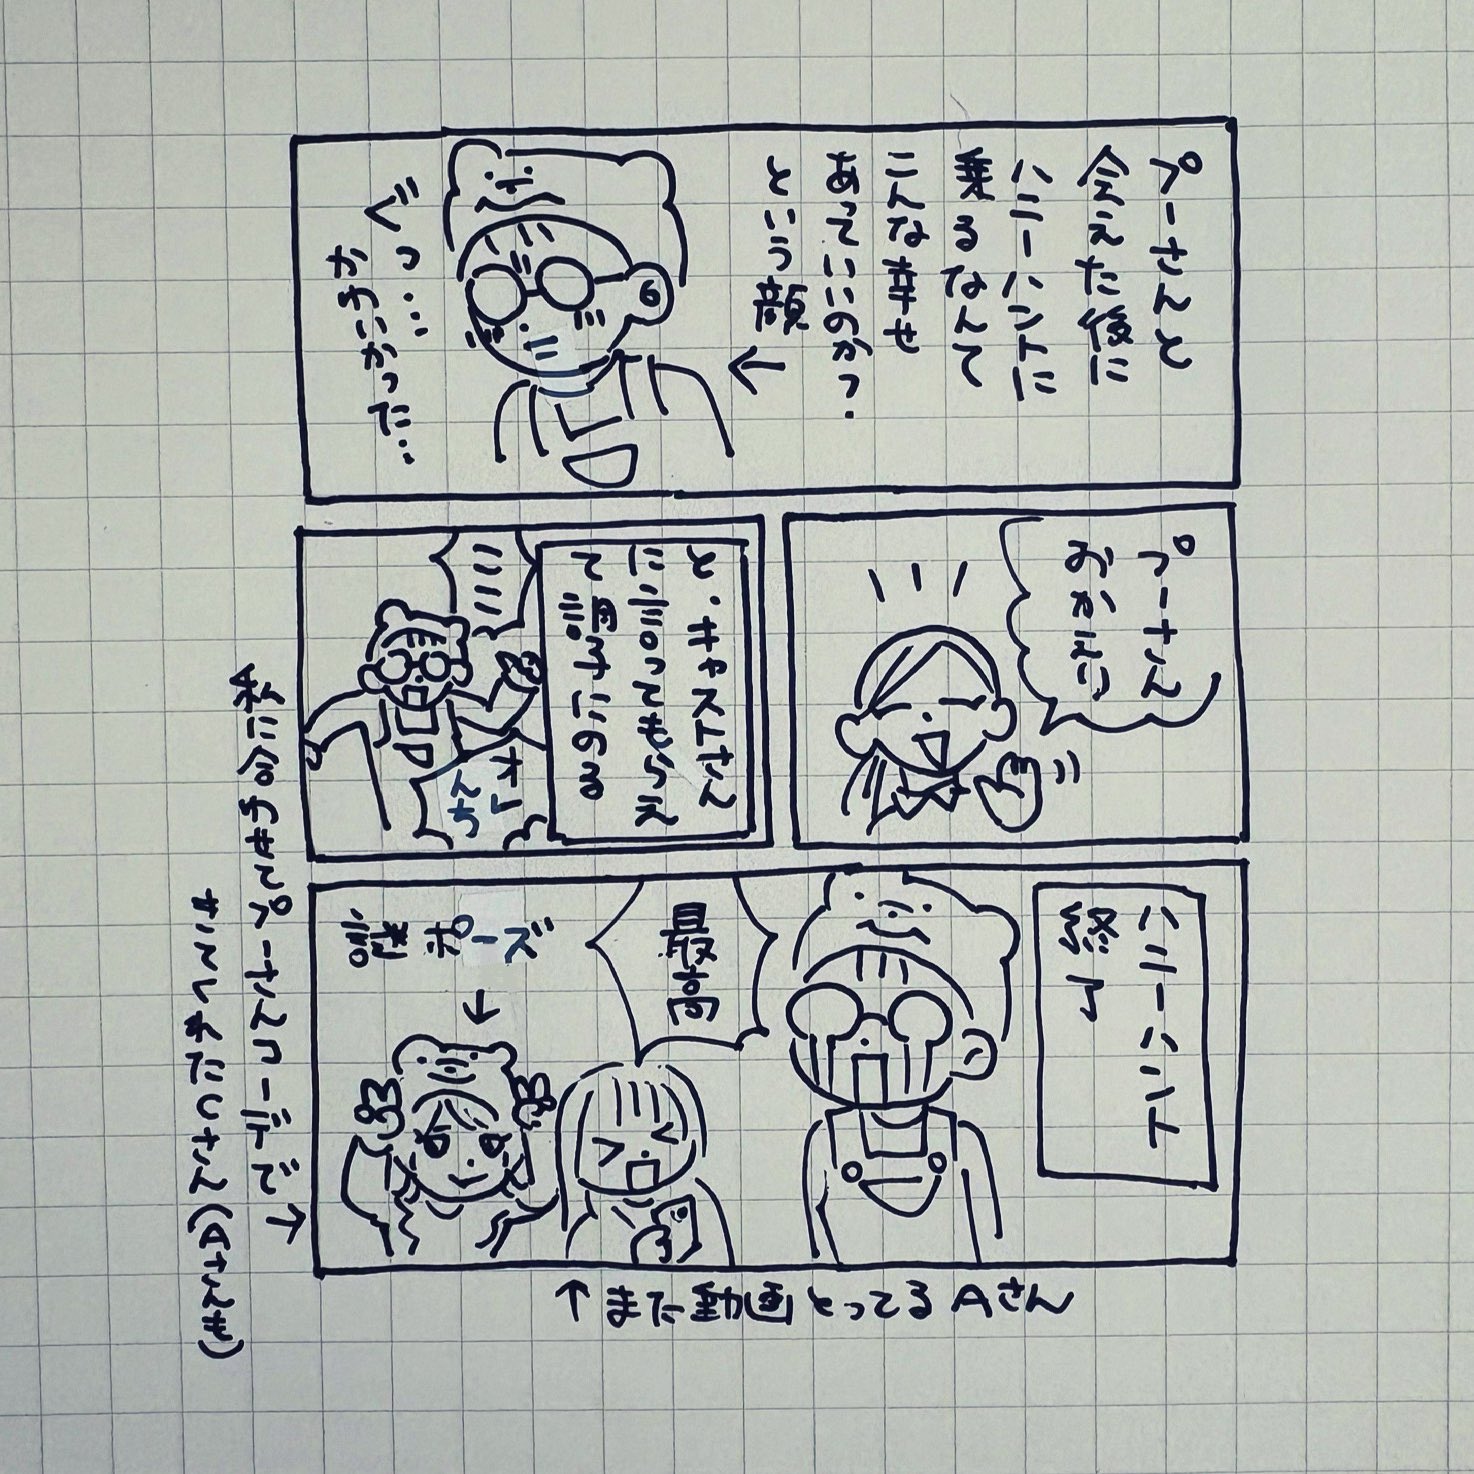 プーさんと
会えた後に
ハニーハントに
乗るなんて
こんな幸せ
あっていいのか？
という顔
ぐっ…
かわいかった…
プーさん
おかえり
と、キャストさん
に言ってもらえ
て調子にのる
ここ
オレ
んち
ハニーハント
終了
最高
謎ポーズ
私に合わせてプーさんコーデで
きてくれたCさん(Aさんも)
↑また動画とってるAさん